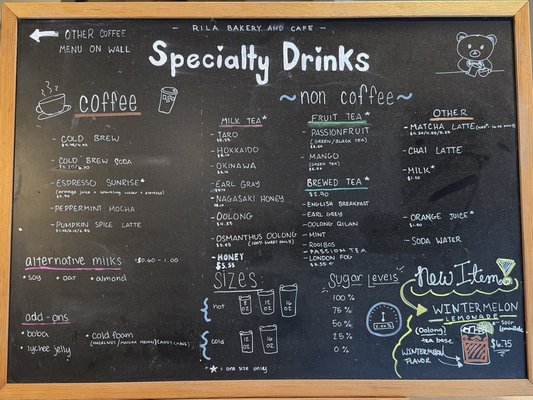 ← OTHER COFFEE
MENU ON WALL
- RILA BAKERY AND CAFE -
Specialty Drinks
coffee
- COLD BREW
- COLD BREW SODA
- ESPRESSO SUNRISE*
(orange juice + sparkling water + espresso)
- PEPPERMINT MOCHA
- PUMPKIN SPICE LATTE
alternative milks $0.60 - 1.00
• soy • oat • almond
add-ons
• boba
• lychee jelly
• cold foam
~ non coffee ~
MILK TEA*
- TARO
- HOKKAIDO
- OKINAWA
- EARL GRAY
- NAGASAKI HONEY
- OOLONG
- OSMANTHUS OOLONG
- HONEY
$5.55
FRUIT TEA*
- PASSIONFRUIT
(GREEN/BLACK TEA)
- MANGO
(GREEN TEA)
BREWED TEA*
- $2.90
- ENGLISH BREAKFAST
- EARL GREY
- OOLONG QILAN
- MINT
- ROOIBOS
- PASSION TEA
LONDON FOG
OTHER
- MATCHA LATTE
- CHAI LATTE
- MILK*
- ORANGE JUICE*
- SODA WATER
SIZES
hot 8 OZ 12 OZ 16 OZ
cold 12 OZ 16 OZ
* = one size only
Sugar Levels
100 %
75 %
50 %
25 %
0 %
New Item!
WINTERMELON
LEMONADE
(Oolong)
tea base
WINTERMELON
FLAVOR
$6.75